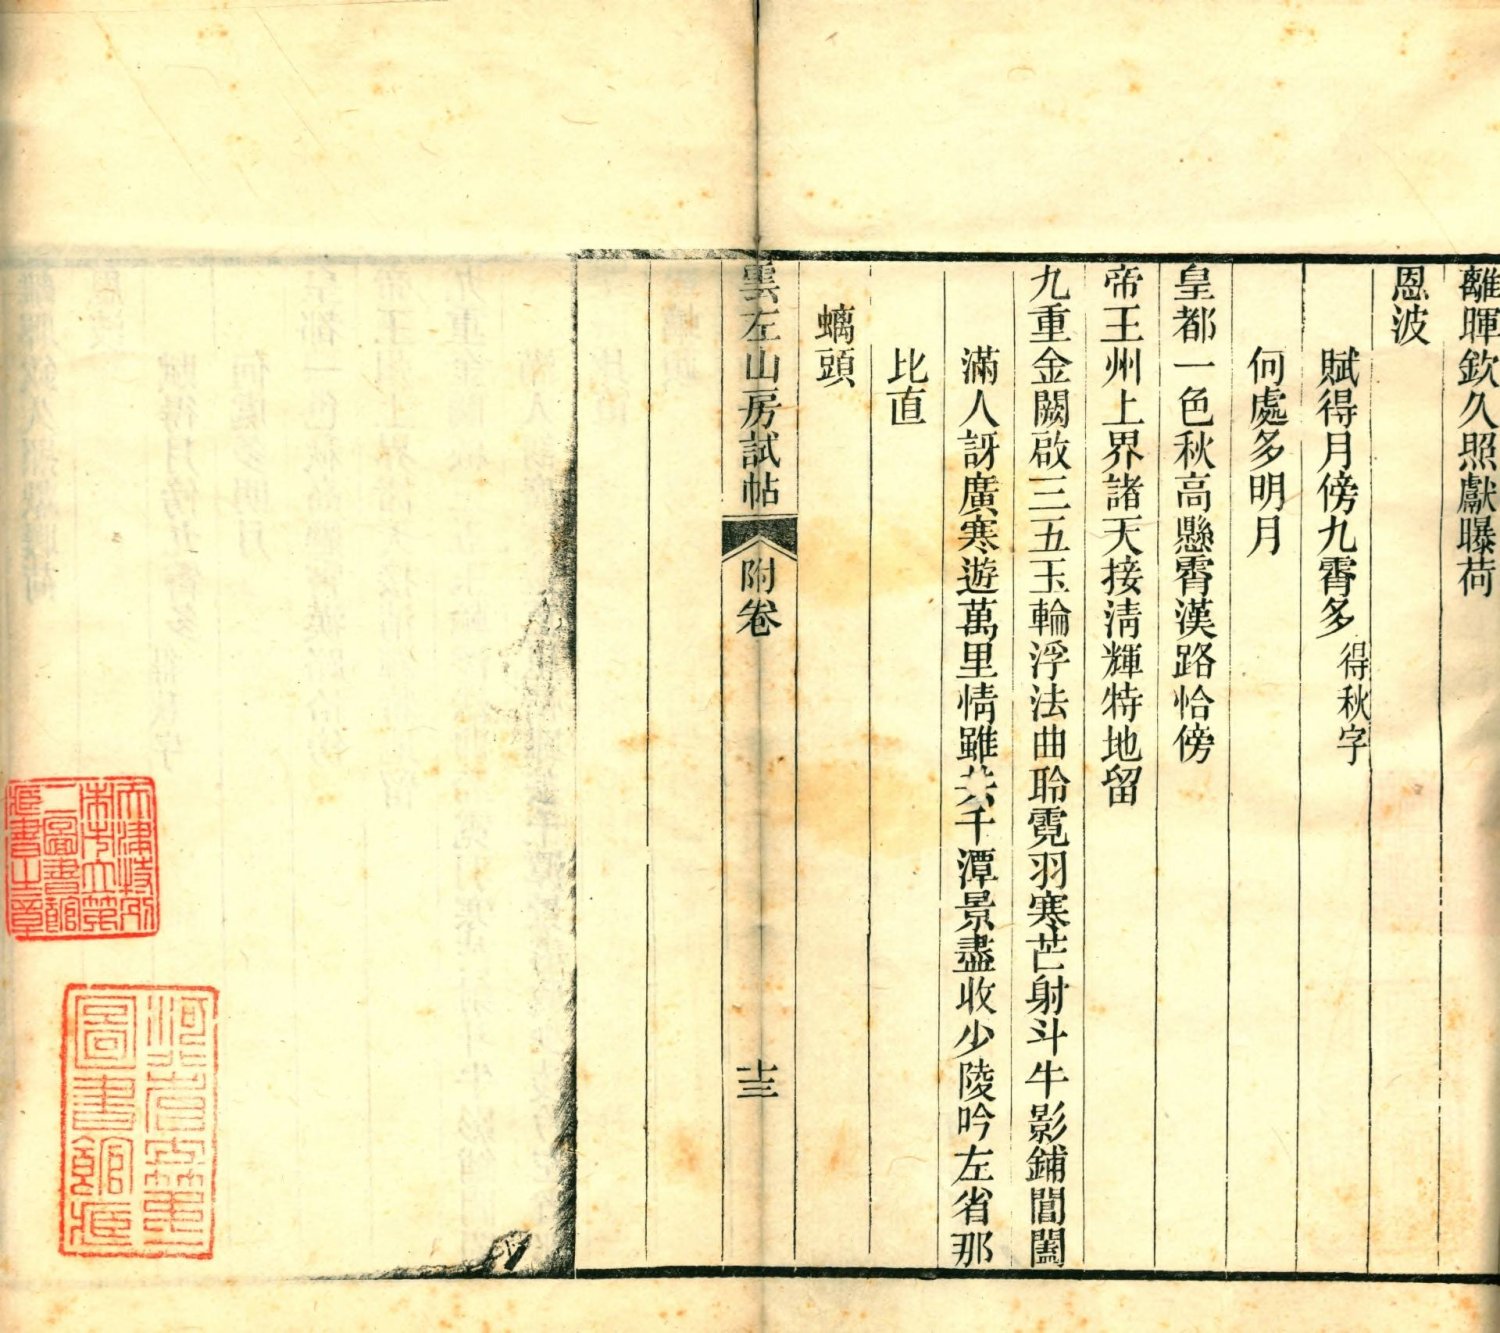 離暉欽久照獻曝荷
恩波
賦得月傍九霄多得秋字
何處多明月
皇都一色秋高懸霄漢路恰傍
帝王州上界諸天接清輝特地留
九重金闕啟三五玉輪浮法曲聆霓羽寒芒射斗牛影鋪閶闔
滿人訝廣寒遊萬里情雖共千潭景盡收少陵吟左省那
比直
螭頭
雲左山房試帖
附卷
十三
天津特別
市市立第
二圖書館
藏書之章
河北省立
圖書館藏